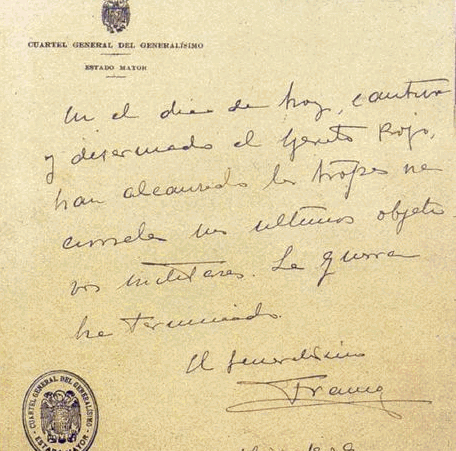 CUARTEL GENERAL DEL GENERALÍSIMO
ESTADO MAYOR
En el dia de hoy, cautivo
y desarmado el Ejercito Rojo,
han alcanzado las tropas na-
cionales sus ultimos objeti-
vos militares. La guerra
ha terminado.
El Generalísimo
Franco
CUARTEL GENERAL DEL GENERALÍSIMO
ESTADO MAYOR